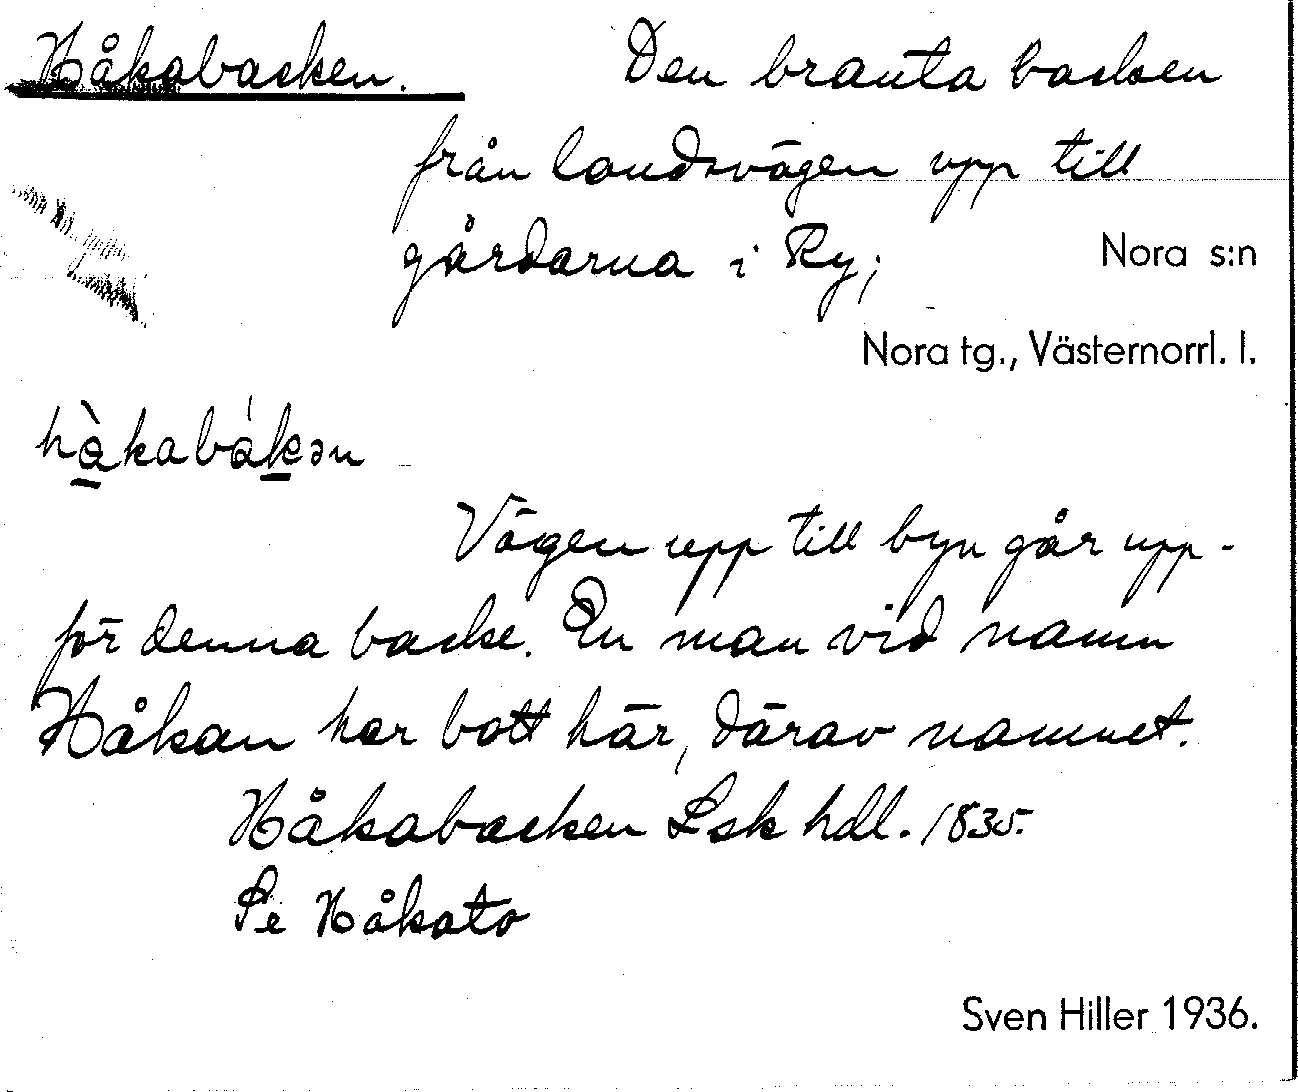 Håkabacken. Den branta backen
från landsvägen upp till
gårdarna i Ry; Nora s:n
Nora tg., Västernorrl. l.
hàkabákən
Vägen upp till byn går upp-
för denna backe. En man vid namn
Håkan har bott här, därav namnet.
Håkabacken Lsk hdl. 1835.
Se Håkato
Sven Hiller 1936.